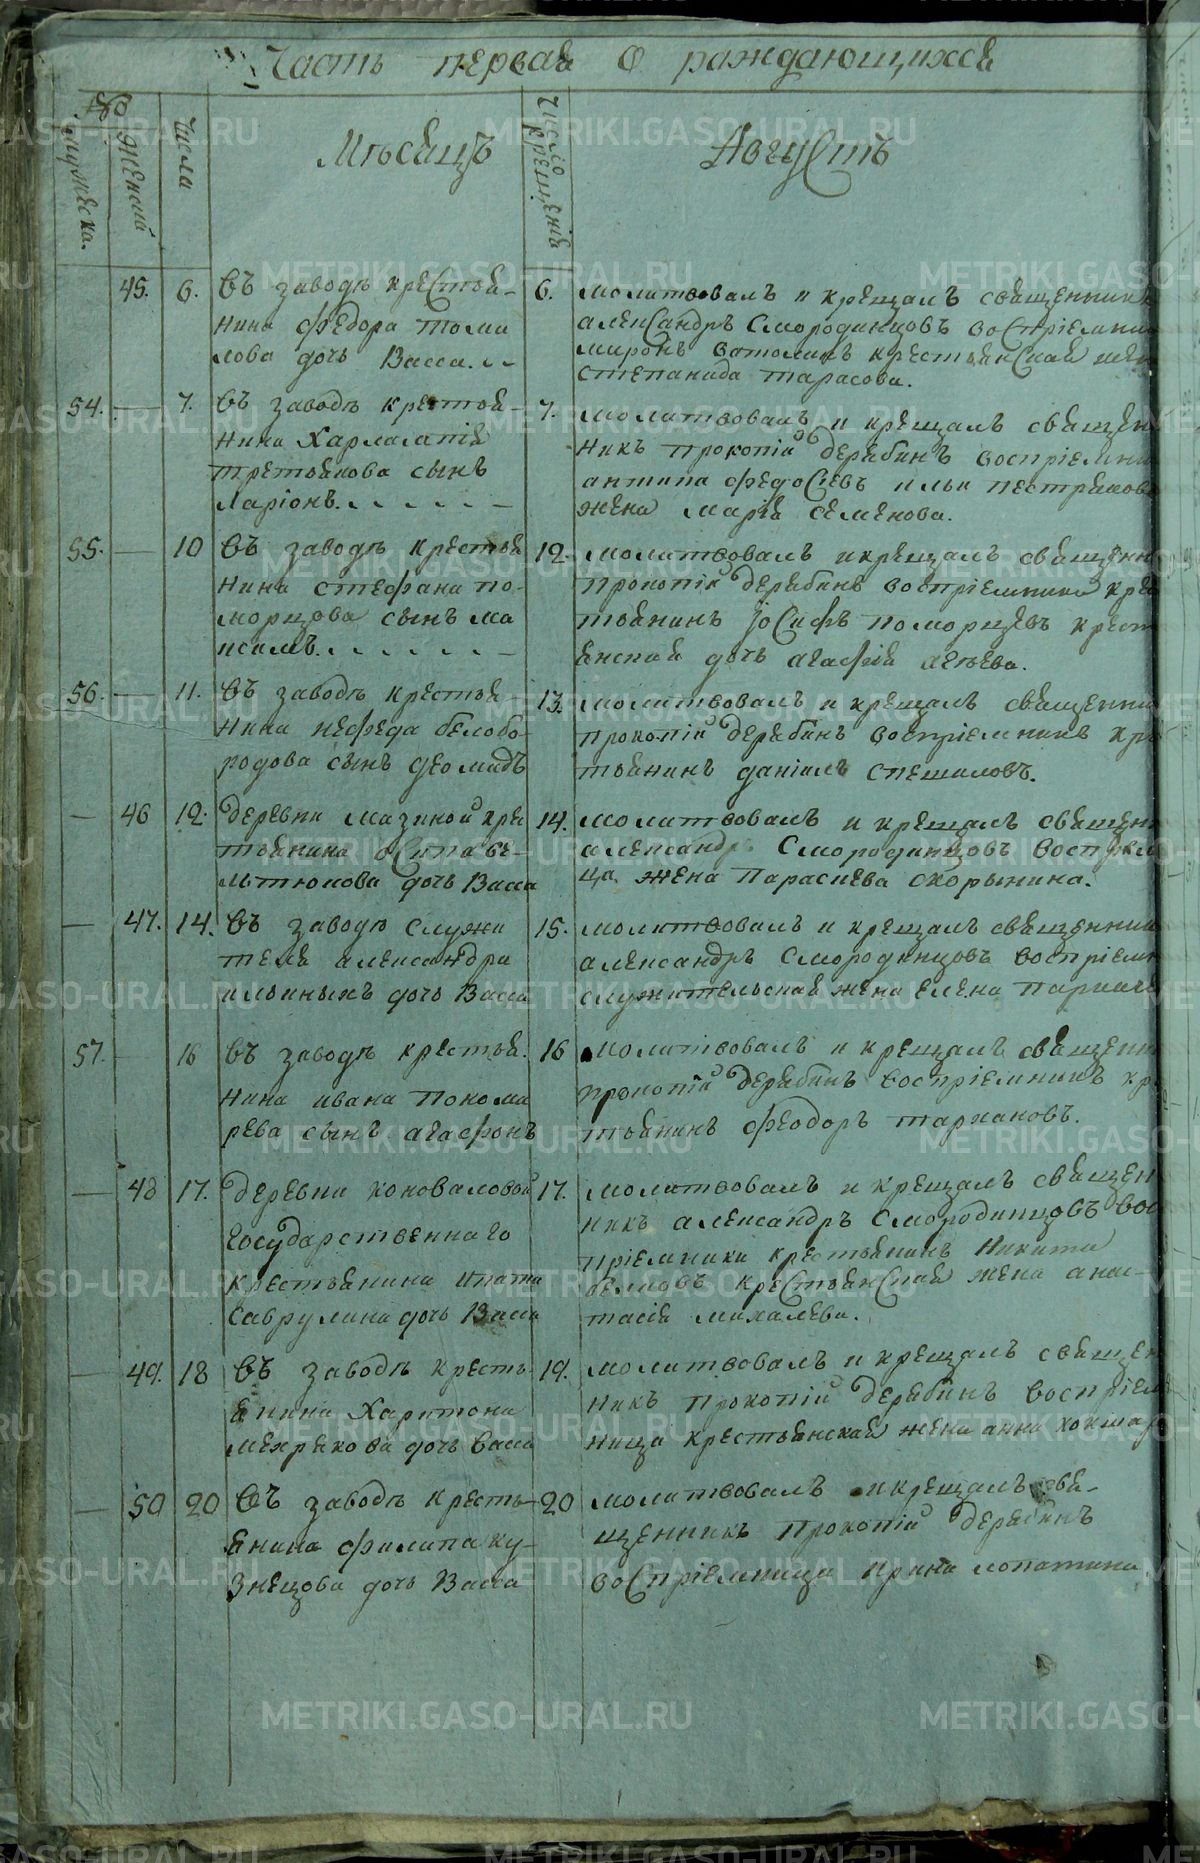 Часть первая о раждающихся
мужеска.
женска
числа
Месяцъ
Число крещенія
Августъ
45. 6. Въ заводѣ крестья-
нина Федора томи
лова дочь Васса.
6. молитвовалъ и крещалъ священник
александръ Смородинцовъ воспріемни
миронъ ватолинъ крестьянская жен
степанида тарасова.
54. — 7. Въ заводѣ крестья-
нина Харлампія
третьякова сынъ
Ларіонъ.
7. молитвовалъ и крещалъ священ
никъ прокопій дерябинъ воспріемни
антипа федосѣевъ ильи пестрякова
жена марія семенова.
55. — 10 Въ заводѣ крестья
нина стефана по-
морцова сынъ ма
ксимъ.
12. молитвовалъ и крещалъ священн
прокопій дерябинъ воспріемники кре
тьянинъ іосифъ поморцевъ крест
янская дочь агафія агѣева.
56. — 11. Въ заводѣ крестья
нина нефеда белобо
родова сынъ деомидъ
13. молитвовалъ и крещалъ священни
прокопій дерябинъ воспріемникъ кре
тьянинъ даніилъ спешиловъ.
— 46 12. деревни мазиной кре
тьянина осипа ве-
льтюкова дочь Васса
14. молитвовалъ и крещалъ священ
александръ Смородинцовъ воспріем
ца жена Параскева скорынина.
— 47. 14. Въ заводѣ служи
теля александра
ильиныхъ дочь Васса
15. молитвовалъ и крещалъ священни
александръ Смородинцовъ воспріем
служительская жена елена
57. — 16 Въ заводѣ крестья.
нина ивана пономи
рева сынъ агафонъ
16 молитвовалъ и крещалъ священн
прокопій дерябинъ воспріемникъ кр
тьянинъ феодоръ таркановъ.
— 48 17. деревни коноваловой
государственнаго
крестьянина ипата
саврулина дочь Васса
17. молитвовалъ и крещалъ священ
никъ александръ Смородинцовъ вос
пріемники крестьянинъ Никита
крестьянская жена анас-
тасія михалева.
— 49. 18 Въ заводѣ кресть-
янина Харитона
мехрякова дочь васса
19. молитвовалъ и крещалъ священ
никъ прокопій дерябинъ воспріем
ница крестьянская жена анна
— 50 20 Въ заводѣ кресть-
янина филипа ку-
знецова дочь Васса
20 молитвовалъ и крещалъ свя-
щенникъ прокопій дерябинъ
воспріемница ирина лопатина
METRIKI.GASO-URAL.RU